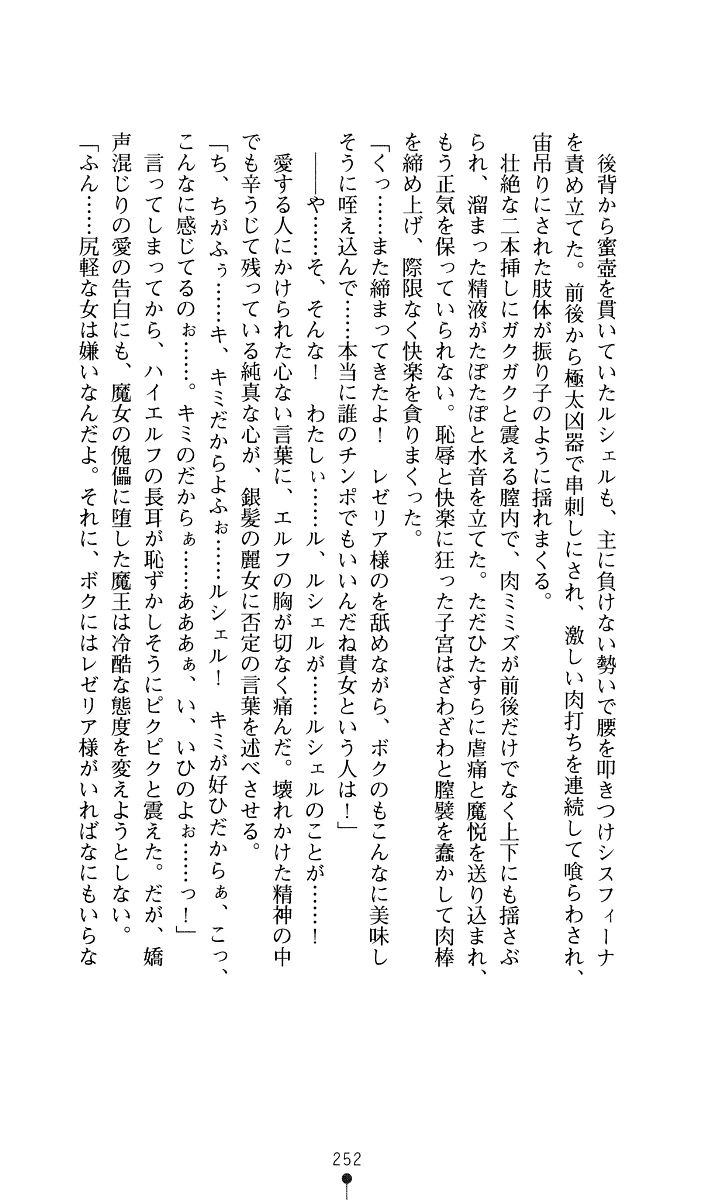 後背から蜜壺を貫いていたルシェルも、主に負けない勢いで腰を叩きつけシスフィーナ
を責め立てた。前後から極太凶器で串刺しにされ、激しい肉打ちを連続して喰らわされ、
宙吊りにされた肢体が振り子のように揺れまくる。
壮絶な二本挿しにガクガクと震える膣内で、肉ミミズが前後だけでなく上下にも揺さぶ
られ、溜まった精液がたぽたぽと水音を立てた。ただひたすらに虐痛と魔悦を送り込まれ、
もう正気を保っていられない。恥辱と快楽に狂った子宮はざわざわと膣襞を蠢かして肉棒
を締め上げ、際限なく快楽を貪りまくった。
「くっ……また締まってきたよ！　レゼリア様のを舐めながら、ボクのもこんなに美味し
そうに咥え込んで……本当に誰のチンポでもいいんだね貴女という人は！」
――や……そ、そんな！　わたしぃ……ル、ルシェルが……ルシェルのことが……！
愛する人にかけられた心ない言葉に、エルフの胸が切なく痛んだ。壊れかけた精神の中
でも辛うじて残っている純真な心が、銀髪の麗女に否定の言葉を述べさせる。
「ち、ちがふぅ……キ、キミだからよふぉ……ルシェル！　キミが好ひだからぁ、こっ、
こんなに感じてるのぉ……。キミのだからぁ……あああぁ、い、いひのよぉ……っ！」
言ってしまってから、ハイエルフの長耳が恥ずかしそうにピクピクと震えた。だが、嬌
声混じりの愛の告白にも、魔女の傀儡に堕した魔王は冷酷な態度を変えようとしない。
「ふん……尻軽な女は嫌いなんだよ。それに、ボクにはレゼリア様がいればなにもいらな
252